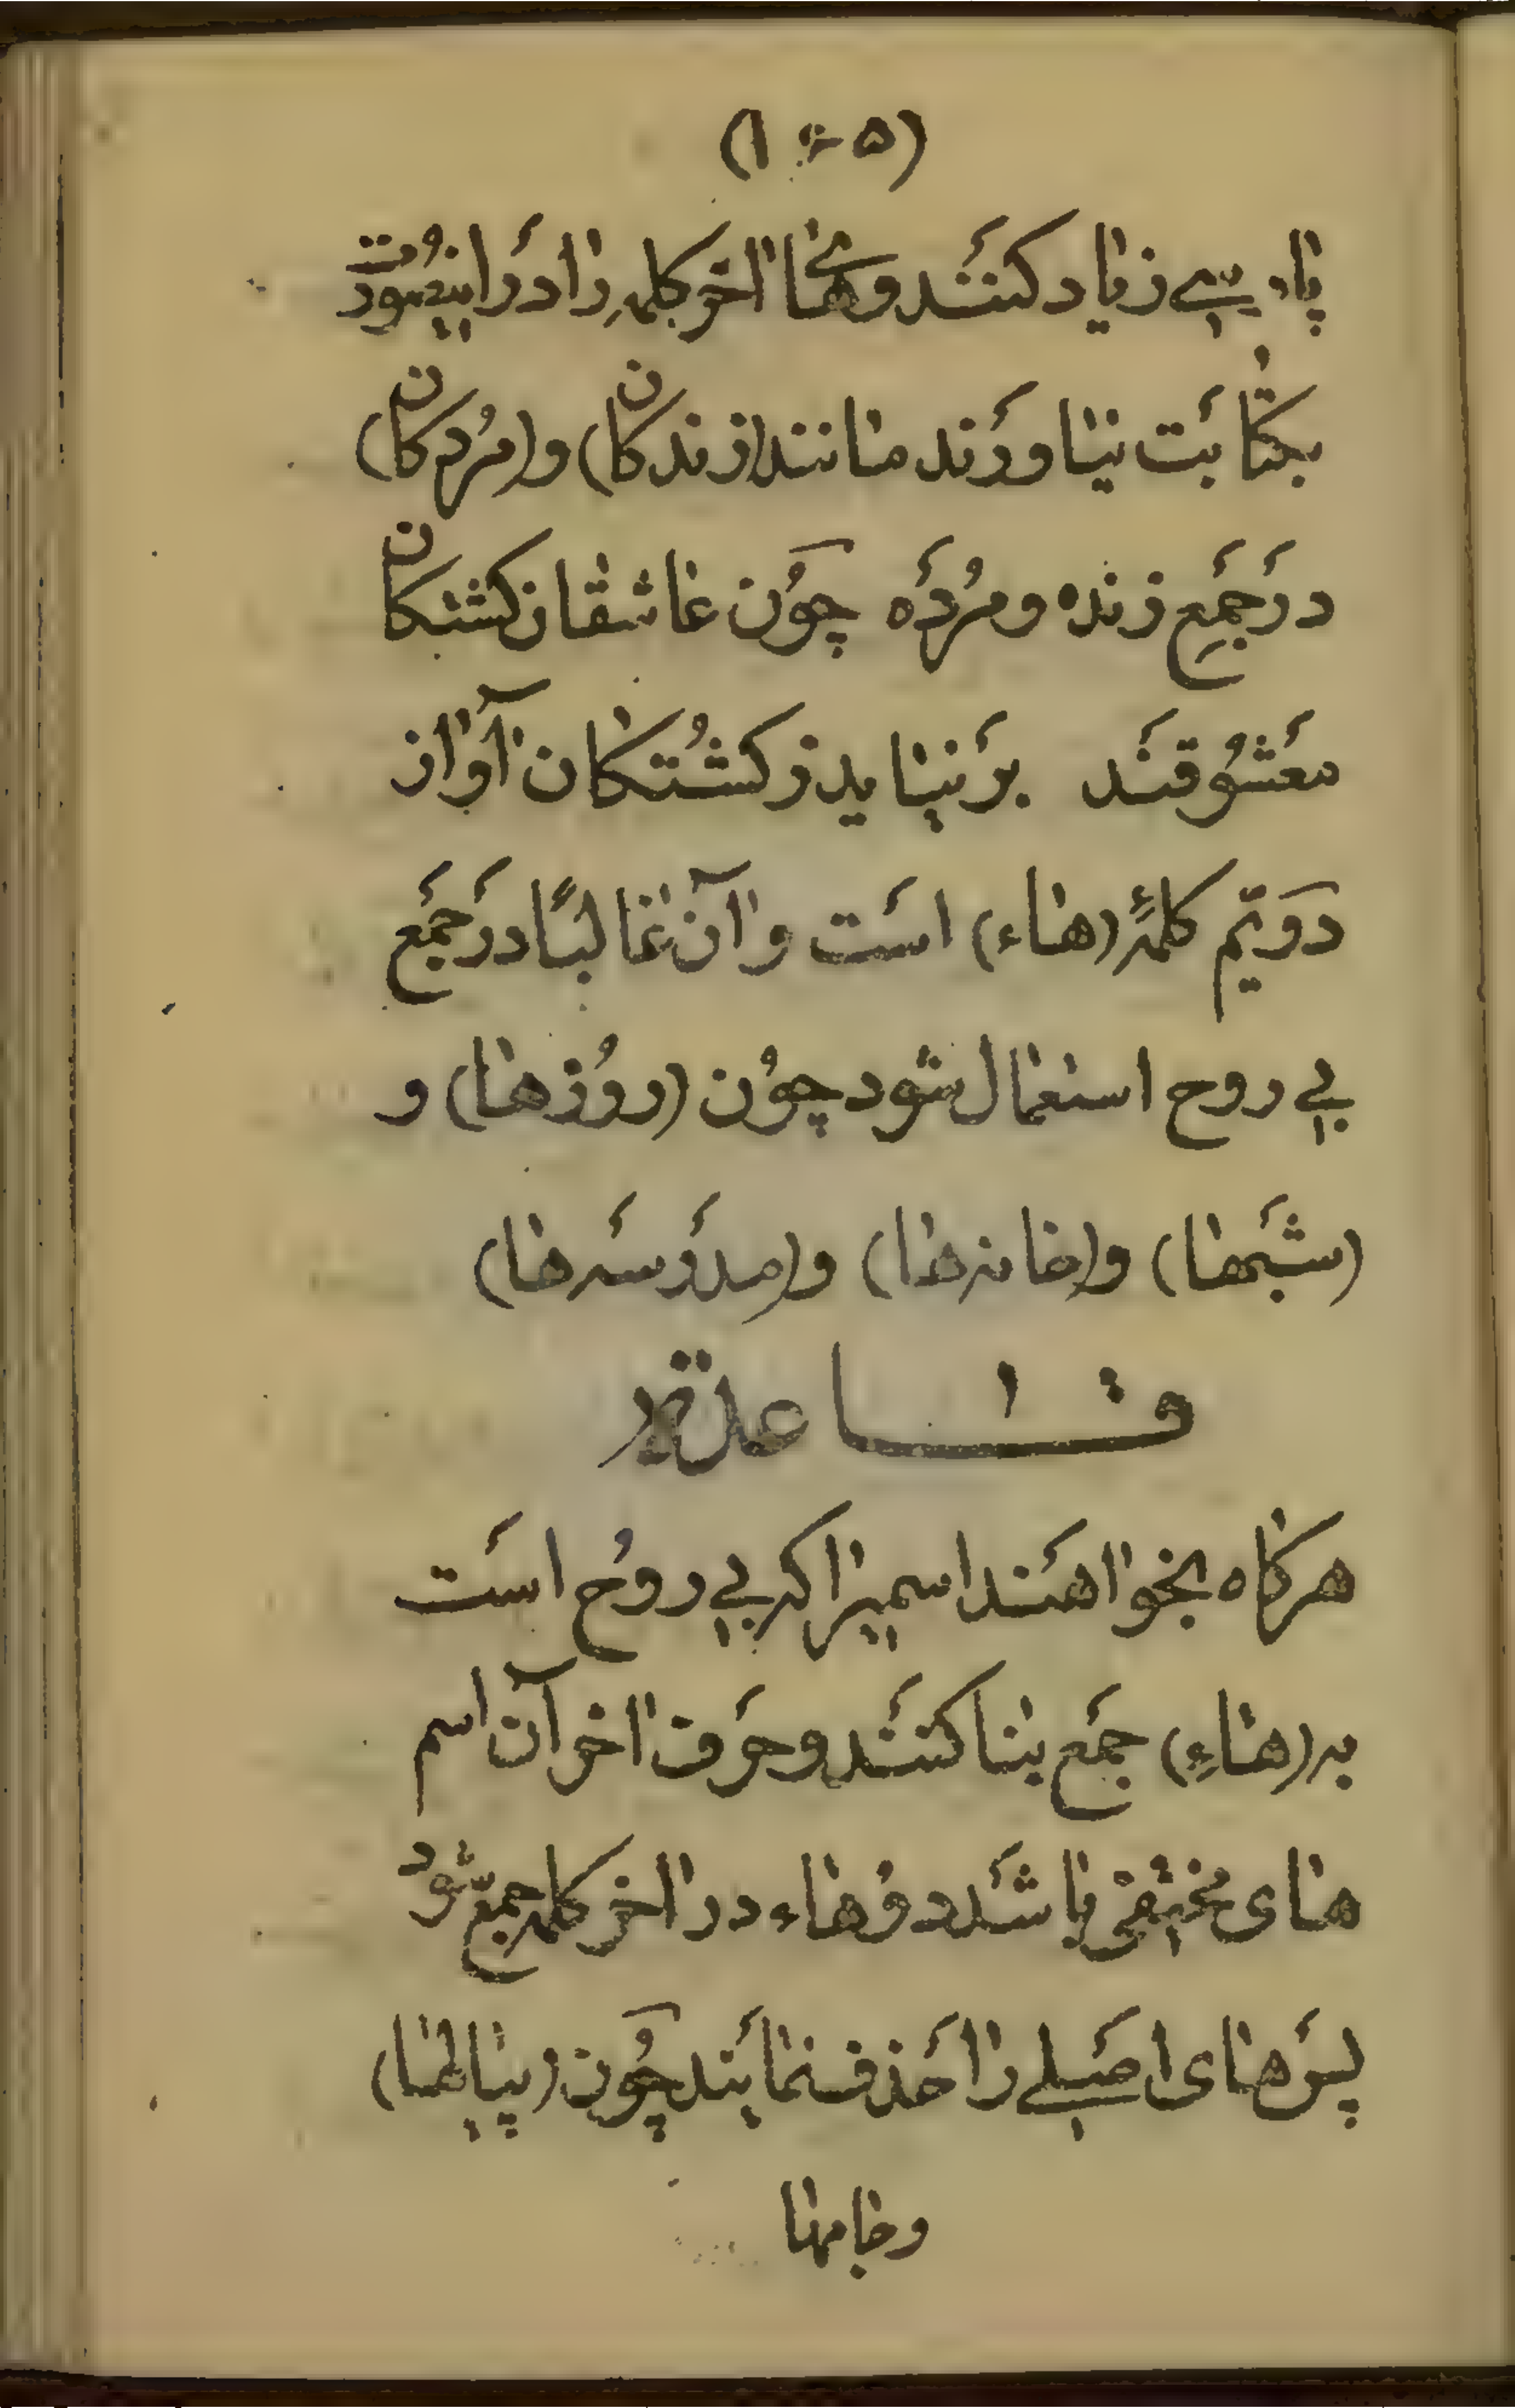 (۱۰۵)
پارسی زیاد کنند وهای اخر کلمه را در اینصورت
بکتابت نیاورند مانند (زندکان) و (مردکان)
در جمع زنده و مرده چون عاشقان کشتکان
معشوقند بر نیاید ز کشتکان آواز
دویم کلمهٔ (هاء) است و آن غالبًا در جمع
بی روح استعمال شود چون (روزها) و
(شبها) و (خانه‌ها) و (مدرسه‌ها)
قاعده
هرکاه بخواهند اسمیرا که بی روح است
به (هاءِ) جمع بنا کنند و حرف اخر آن اسم
های مختفی باشد دو هاء در اخر کلمه جمع شود
پس های اصلی را حذف نمایند چون (پیالها)
وخامها